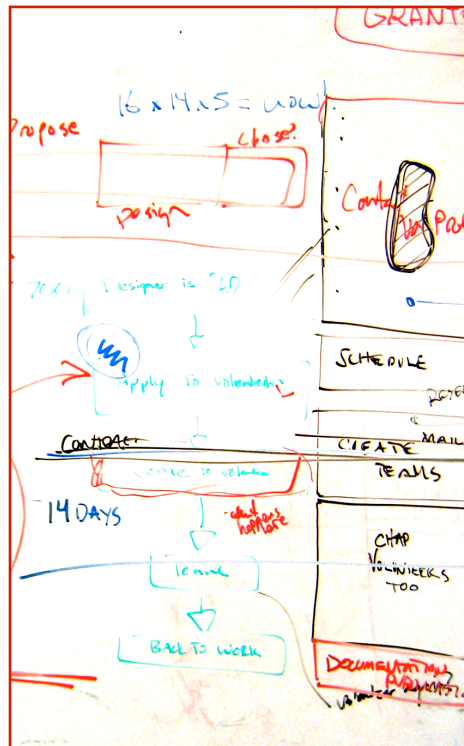 GRANT
16 x 14 x 5 = wow!
ropose
Chose?
Design
Designer is
Apply to volunteer
SCHEDULE
CONTRACT
CREATE
MAIL
TEAMS
to volunteer
14 DAYS
what
happens
here
Team
CHAP
VOLUNTEERS
TOO
BACK TO WORK
DOCUMENTATION
volunteer